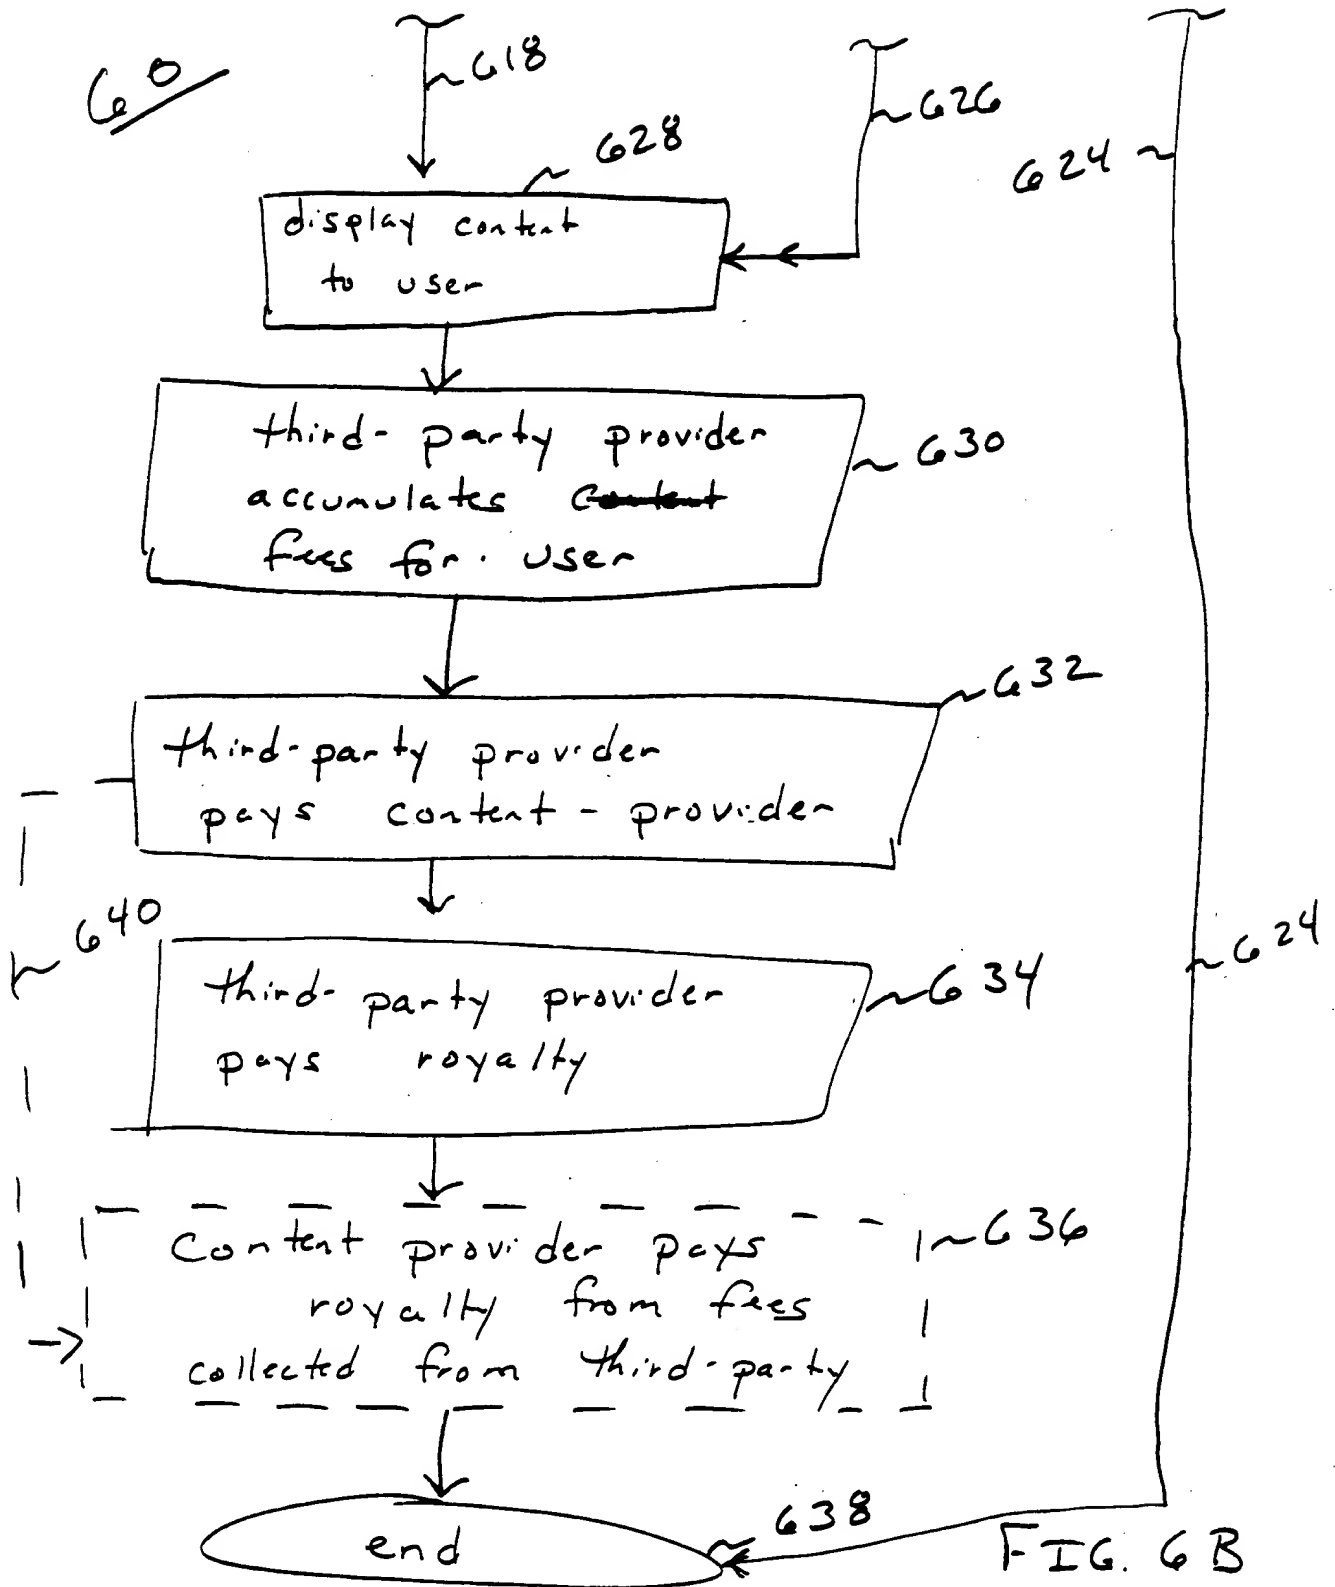 60
618
626
624
628
display content
to user
third-party provider
accumulates content
fees for user
630
632
third-party provider
pays content-provider
640
624
third-party provider
pays royalty
634
Content provider pays
royalty from fees
collected from third-party
636
end
638
FIG. 6B